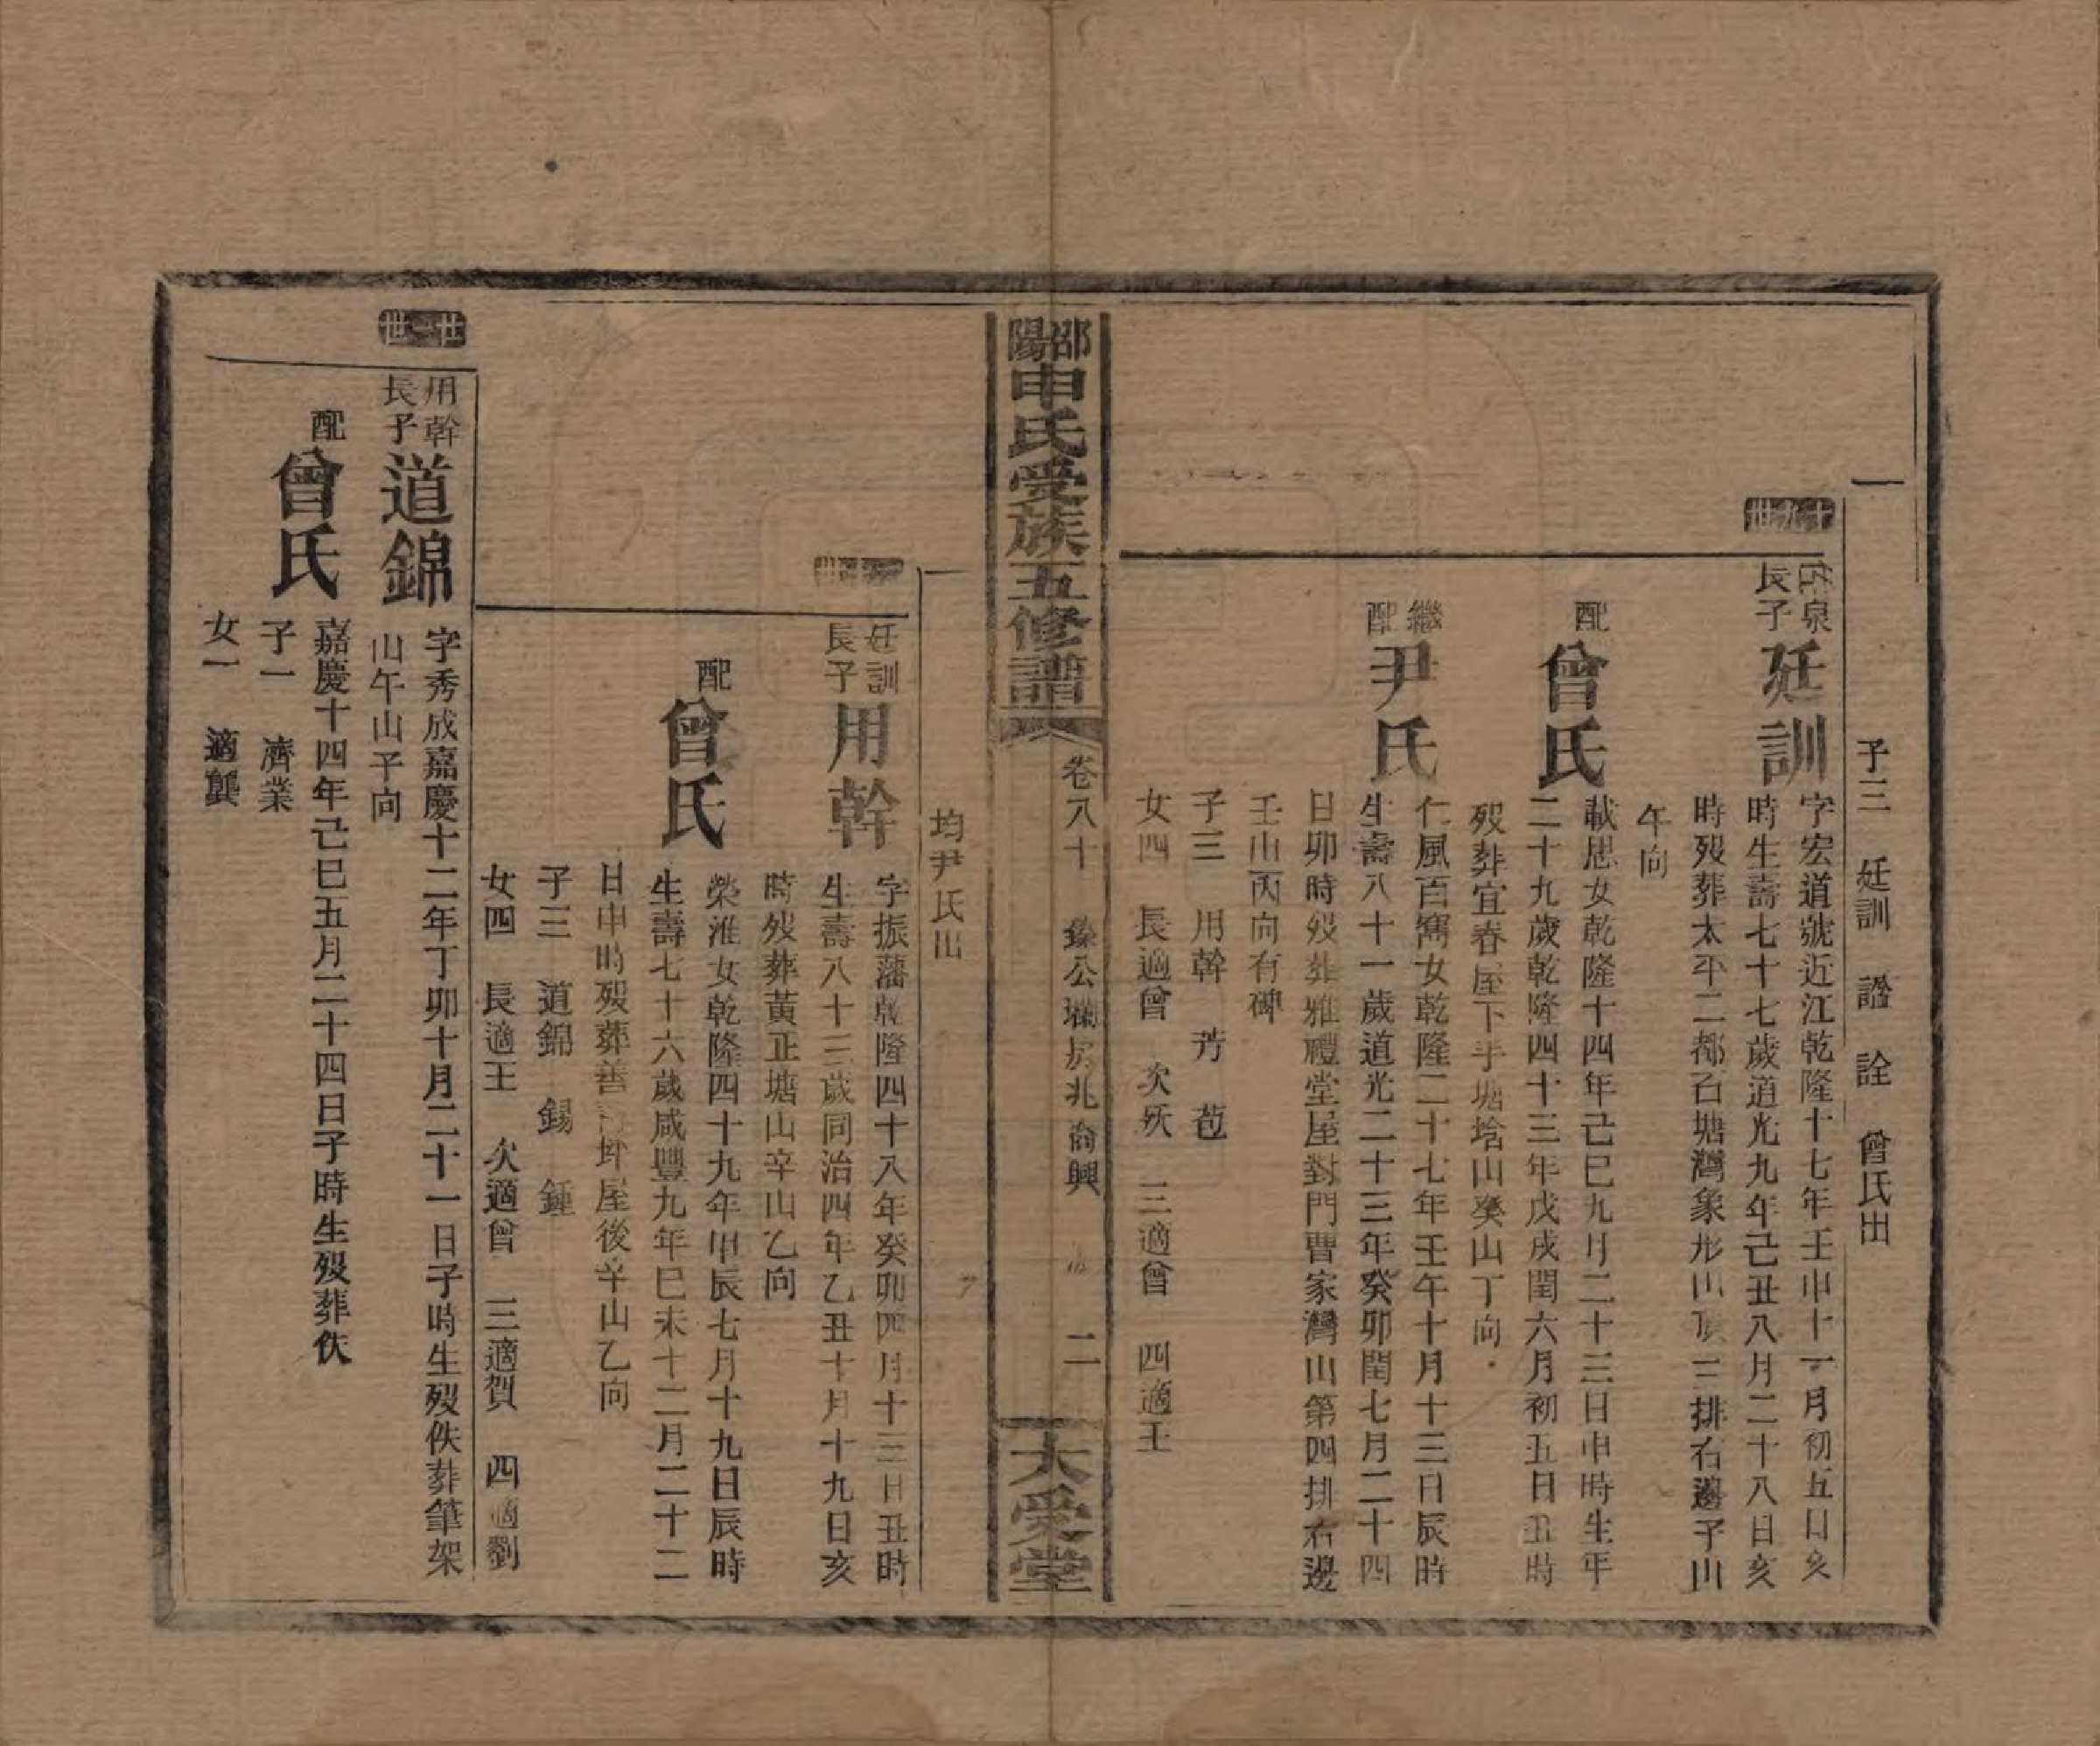 子三　廷訓　諡　詮　曾氏出
十九世
泉長子
廷訓
字宏道號近江乾隆十七年壬申十一月初五日亥
時生壽七十七歲道光九年己丑八月二十八日亥
時歿葬太平二都石塘灣象形山頂三排右邊子山
午向
配
曾氏
載思女乾隆十四年己巳九月二十三日申時生年
二十九歲乾隆四十三年戊戌閏六月初五日丑時
歿葬宜春屋下手塘塝山癸山丁向
繼配
尹氏
仁風百窩女乾隆二十七年壬午十月十三日辰時
生壽八十一歲道光二十三年癸卯閏七月二十四
日卯時歿葬雅禮堂屋對門曹家灣山第四排右邊
壬山丙向有碑
子三　用幹　芳　苞
女四　長適曾　次殀　三適曾　四適王
邵陽申氏受族五修譜
卷八十　臻公瓓房兆裔興　二
大受堂
均尹氏出
世
廷訓長子
用幹
字振藩乾隆四十八年癸卯四月十三日丑時
生壽八十三歲同治四年乙丑十月十九日亥
時歿葬黃正塘山辛山乙向
配
曾氏
榮淮女乾隆四十九年甲辰七月十九日辰時
生壽七十六歲咸豐九年己未十二月二十二
日申時歿葬善坪屋後辛山乙向
子三　道錦　錫　鍾
女四　長適王　次適曾　三適賀　四適劉
廿一世
用幹長子
道錦
字秀成嘉慶十二年丁卯十月二十一日子時生歿佚葬筆架
山午山子向
配
曾氏
嘉慶十四年己巳五月二十四日子時生歿葬佚
子一　濟業
女一　適龔